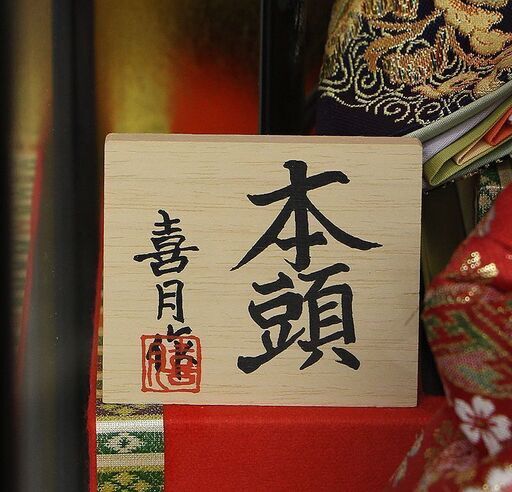 本頭
喜月作